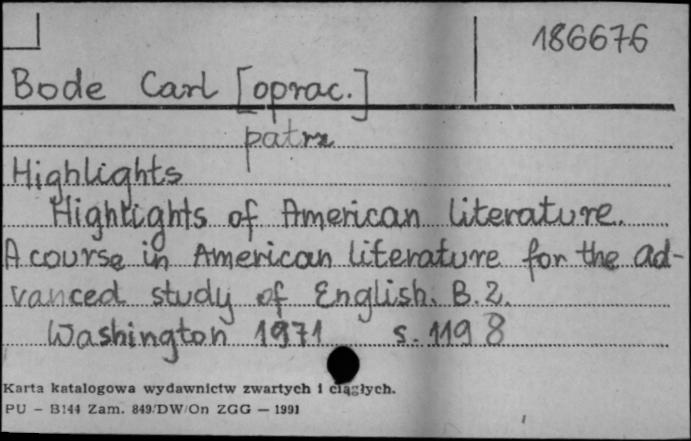 186676
Bode Carl [oprac.]
patrz
Highlights
Highlights of American literature.
A course in American literature for the ad-
vanced study of English. B. 2.
Washington 1971 s. 119 8
Karta katalogowa wydawnictw zwartych i ciągłych.
PU - B144 Zam. 849/DW/On ZGG - 1991